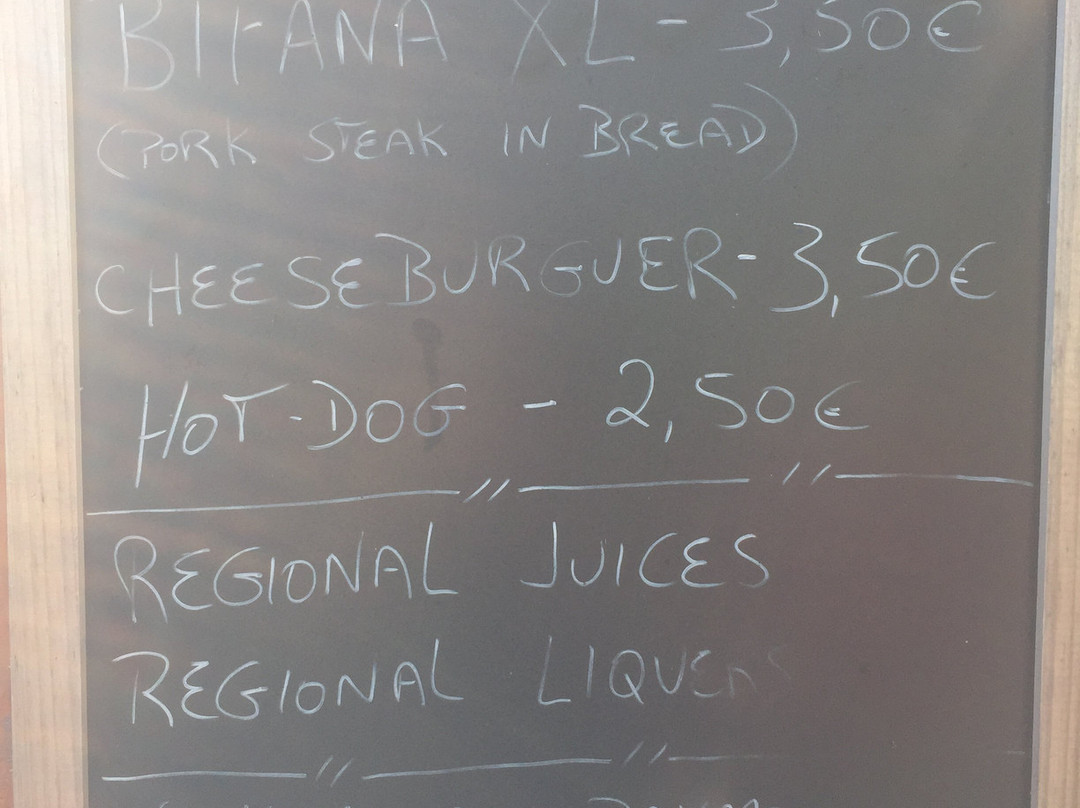 BIFANA XL - 3,50€
(PORK STEAK IN BREAD)
CHEESEBURGUER - 3,50€
HOT-DOG - 2,50€
REGIONAL JUICES
REGIONAL